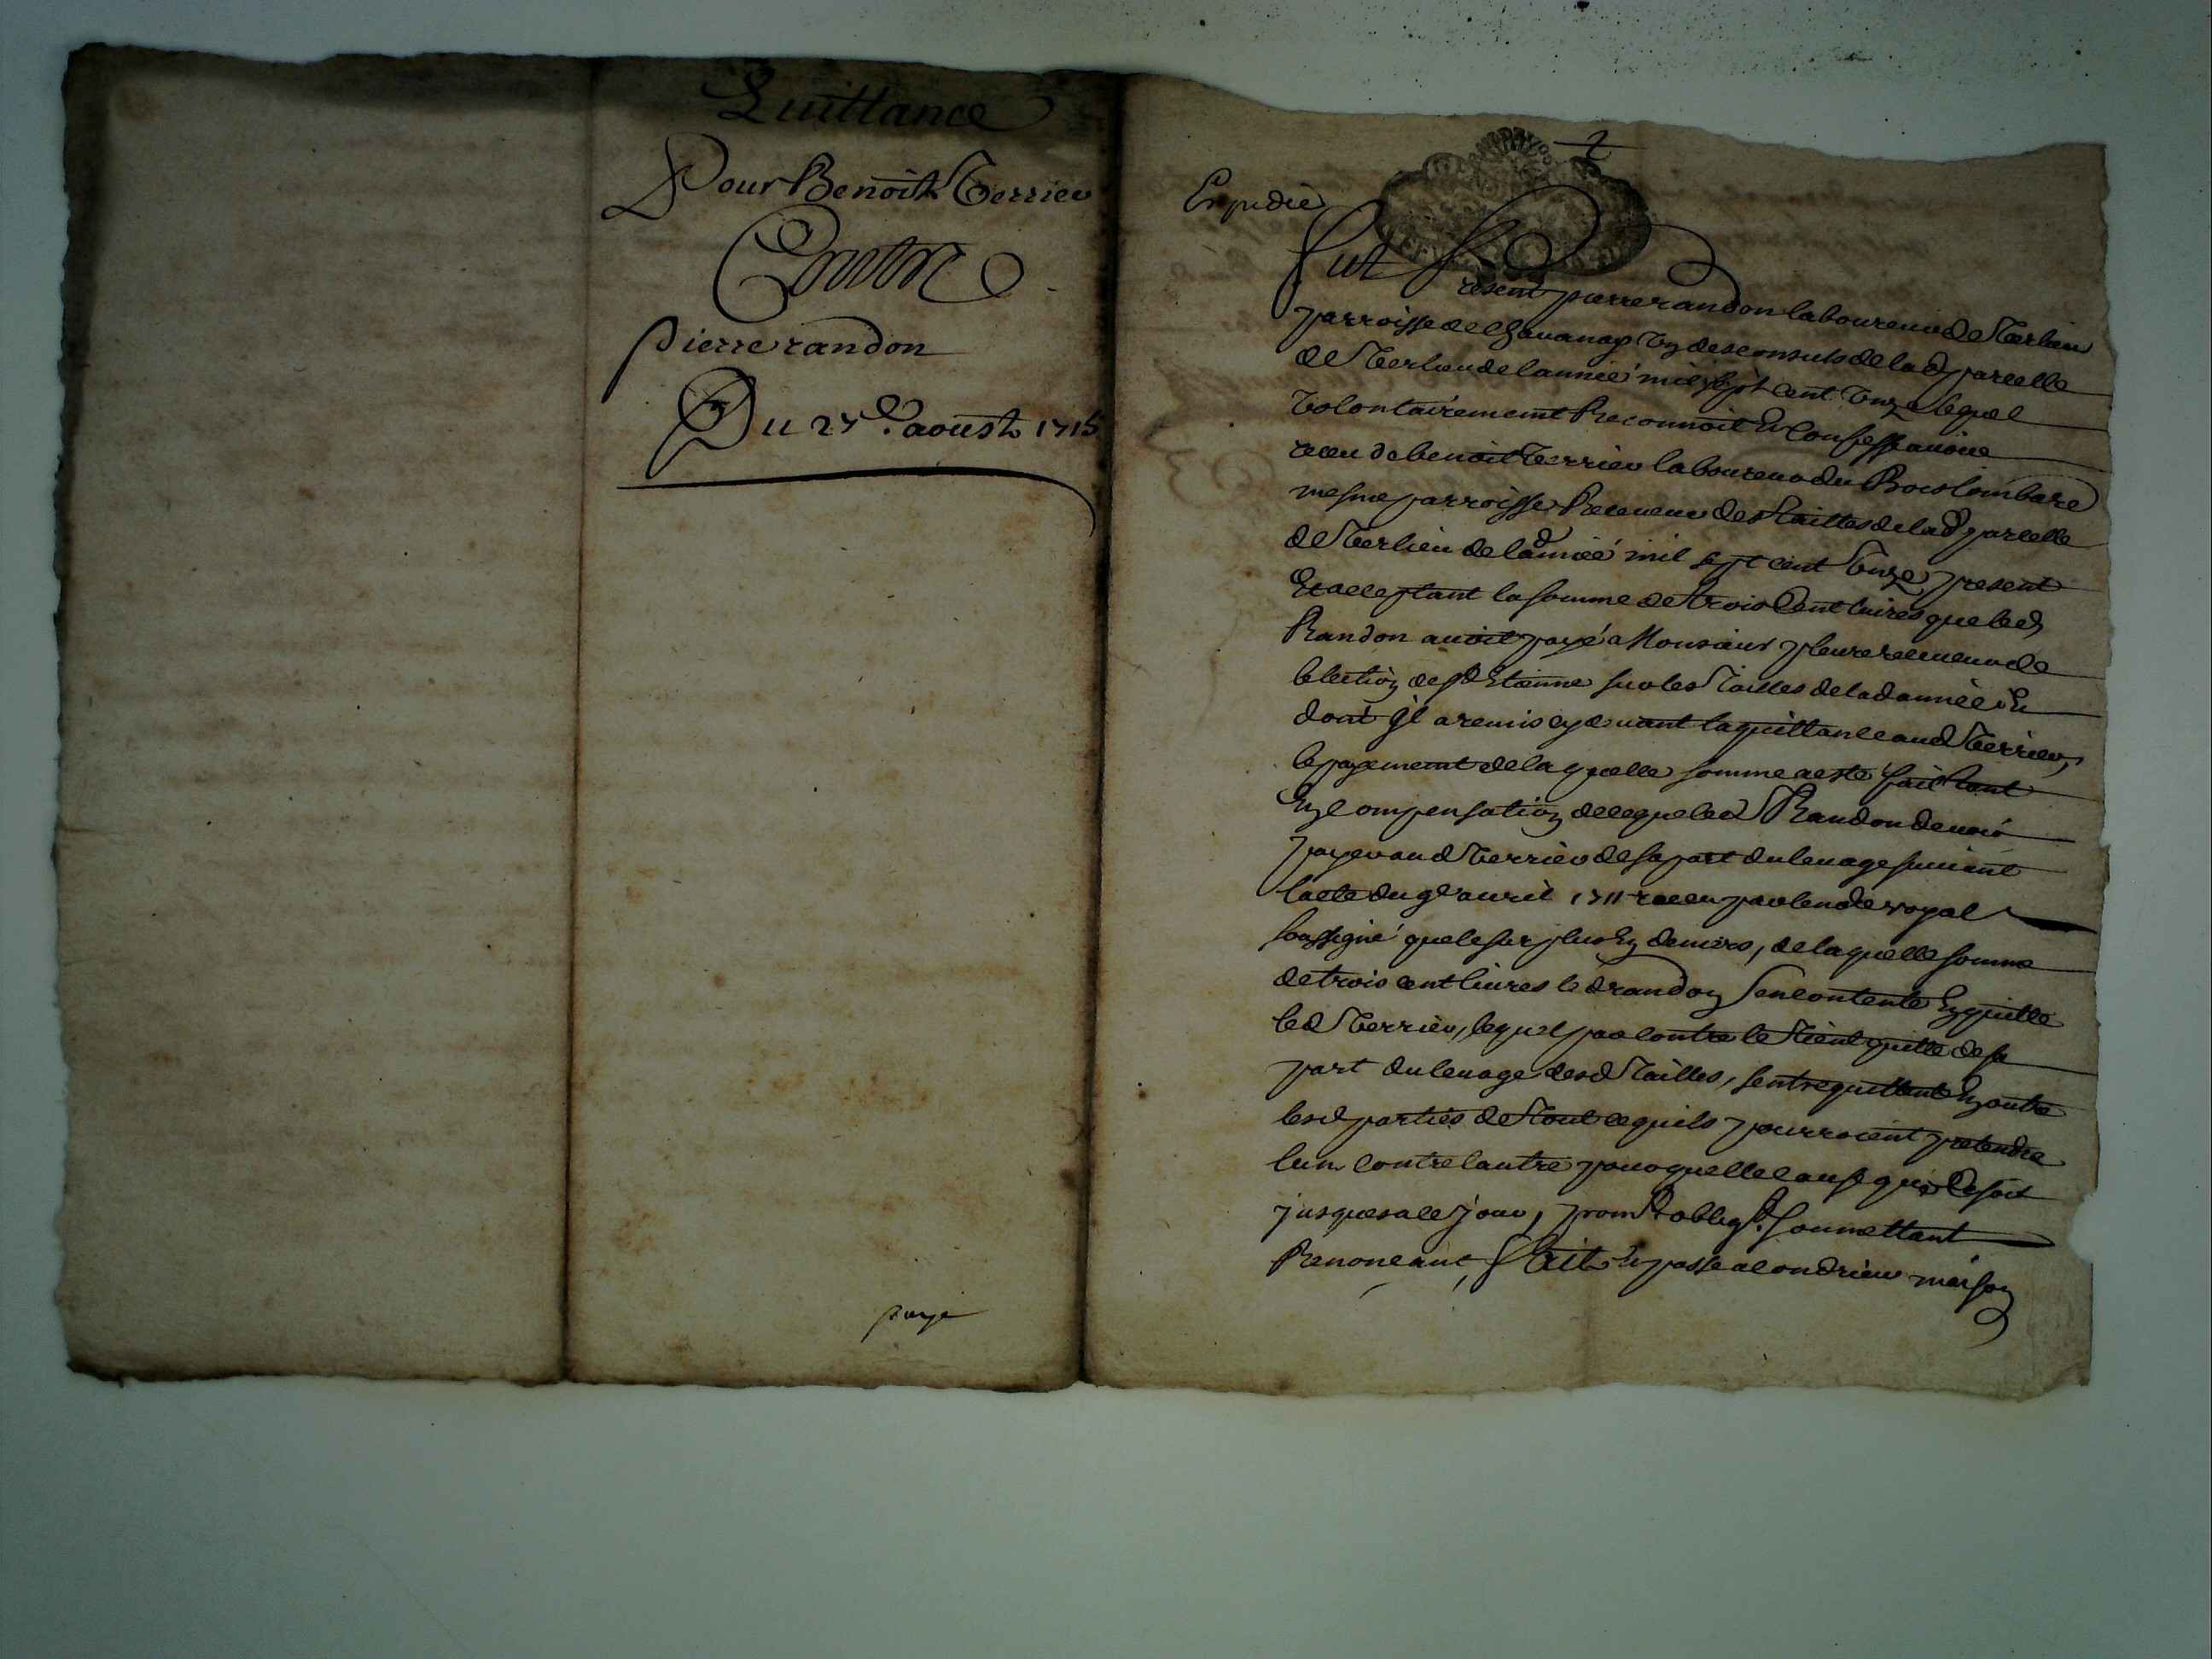 Quittance
Pour Benoith Terrieu
Contre
pierre randon
Du 27e aoust 1715
paye
Expedié
Fut
resent pierre randon laboureur de Verlieu
parroisse de Chavanay un des consuls de lad parcelle
de Verlieu de lannée mil sept cent unze lequel
volontairement Reconnoit et Confesse avoir
receu de benoit Terrieu laboureur du Bois lombard
mesme parroisse Receveur des tailles de lad parcelle
de Verlieu de lad année mil sept cent unze, present
et acceptant la somme de trois Cent livres que led
Randon avoit payé a Monsieur receveur de
lelection de st Etienne sur les Tailles de lad année et
dont jl a remis cy devant la quittance aud Terrieu,
le payement de laquelle somme a esté fait tant
en Compensation de ce que led Randon devoit
payer aud Terrieu de sa part du levage suivant
lacte du 9e avril 1711 receu par le no.re royal
soussigné que le surplus en deniers, de laquelle somme
de trois cent livres le d randon sen contente en quitte
led Terrieu, lequel par contre le tient quitte de sa
part du levage desd Tailles, sentrequittent en outre
lesd parties de tout ce quils pourroient pretendre
lun contre lautre pour quelle cause que Ce soit
jusques a ce jour, prom.t obligt. soumettant
Renonceant, fait et passe a Condrieu maison